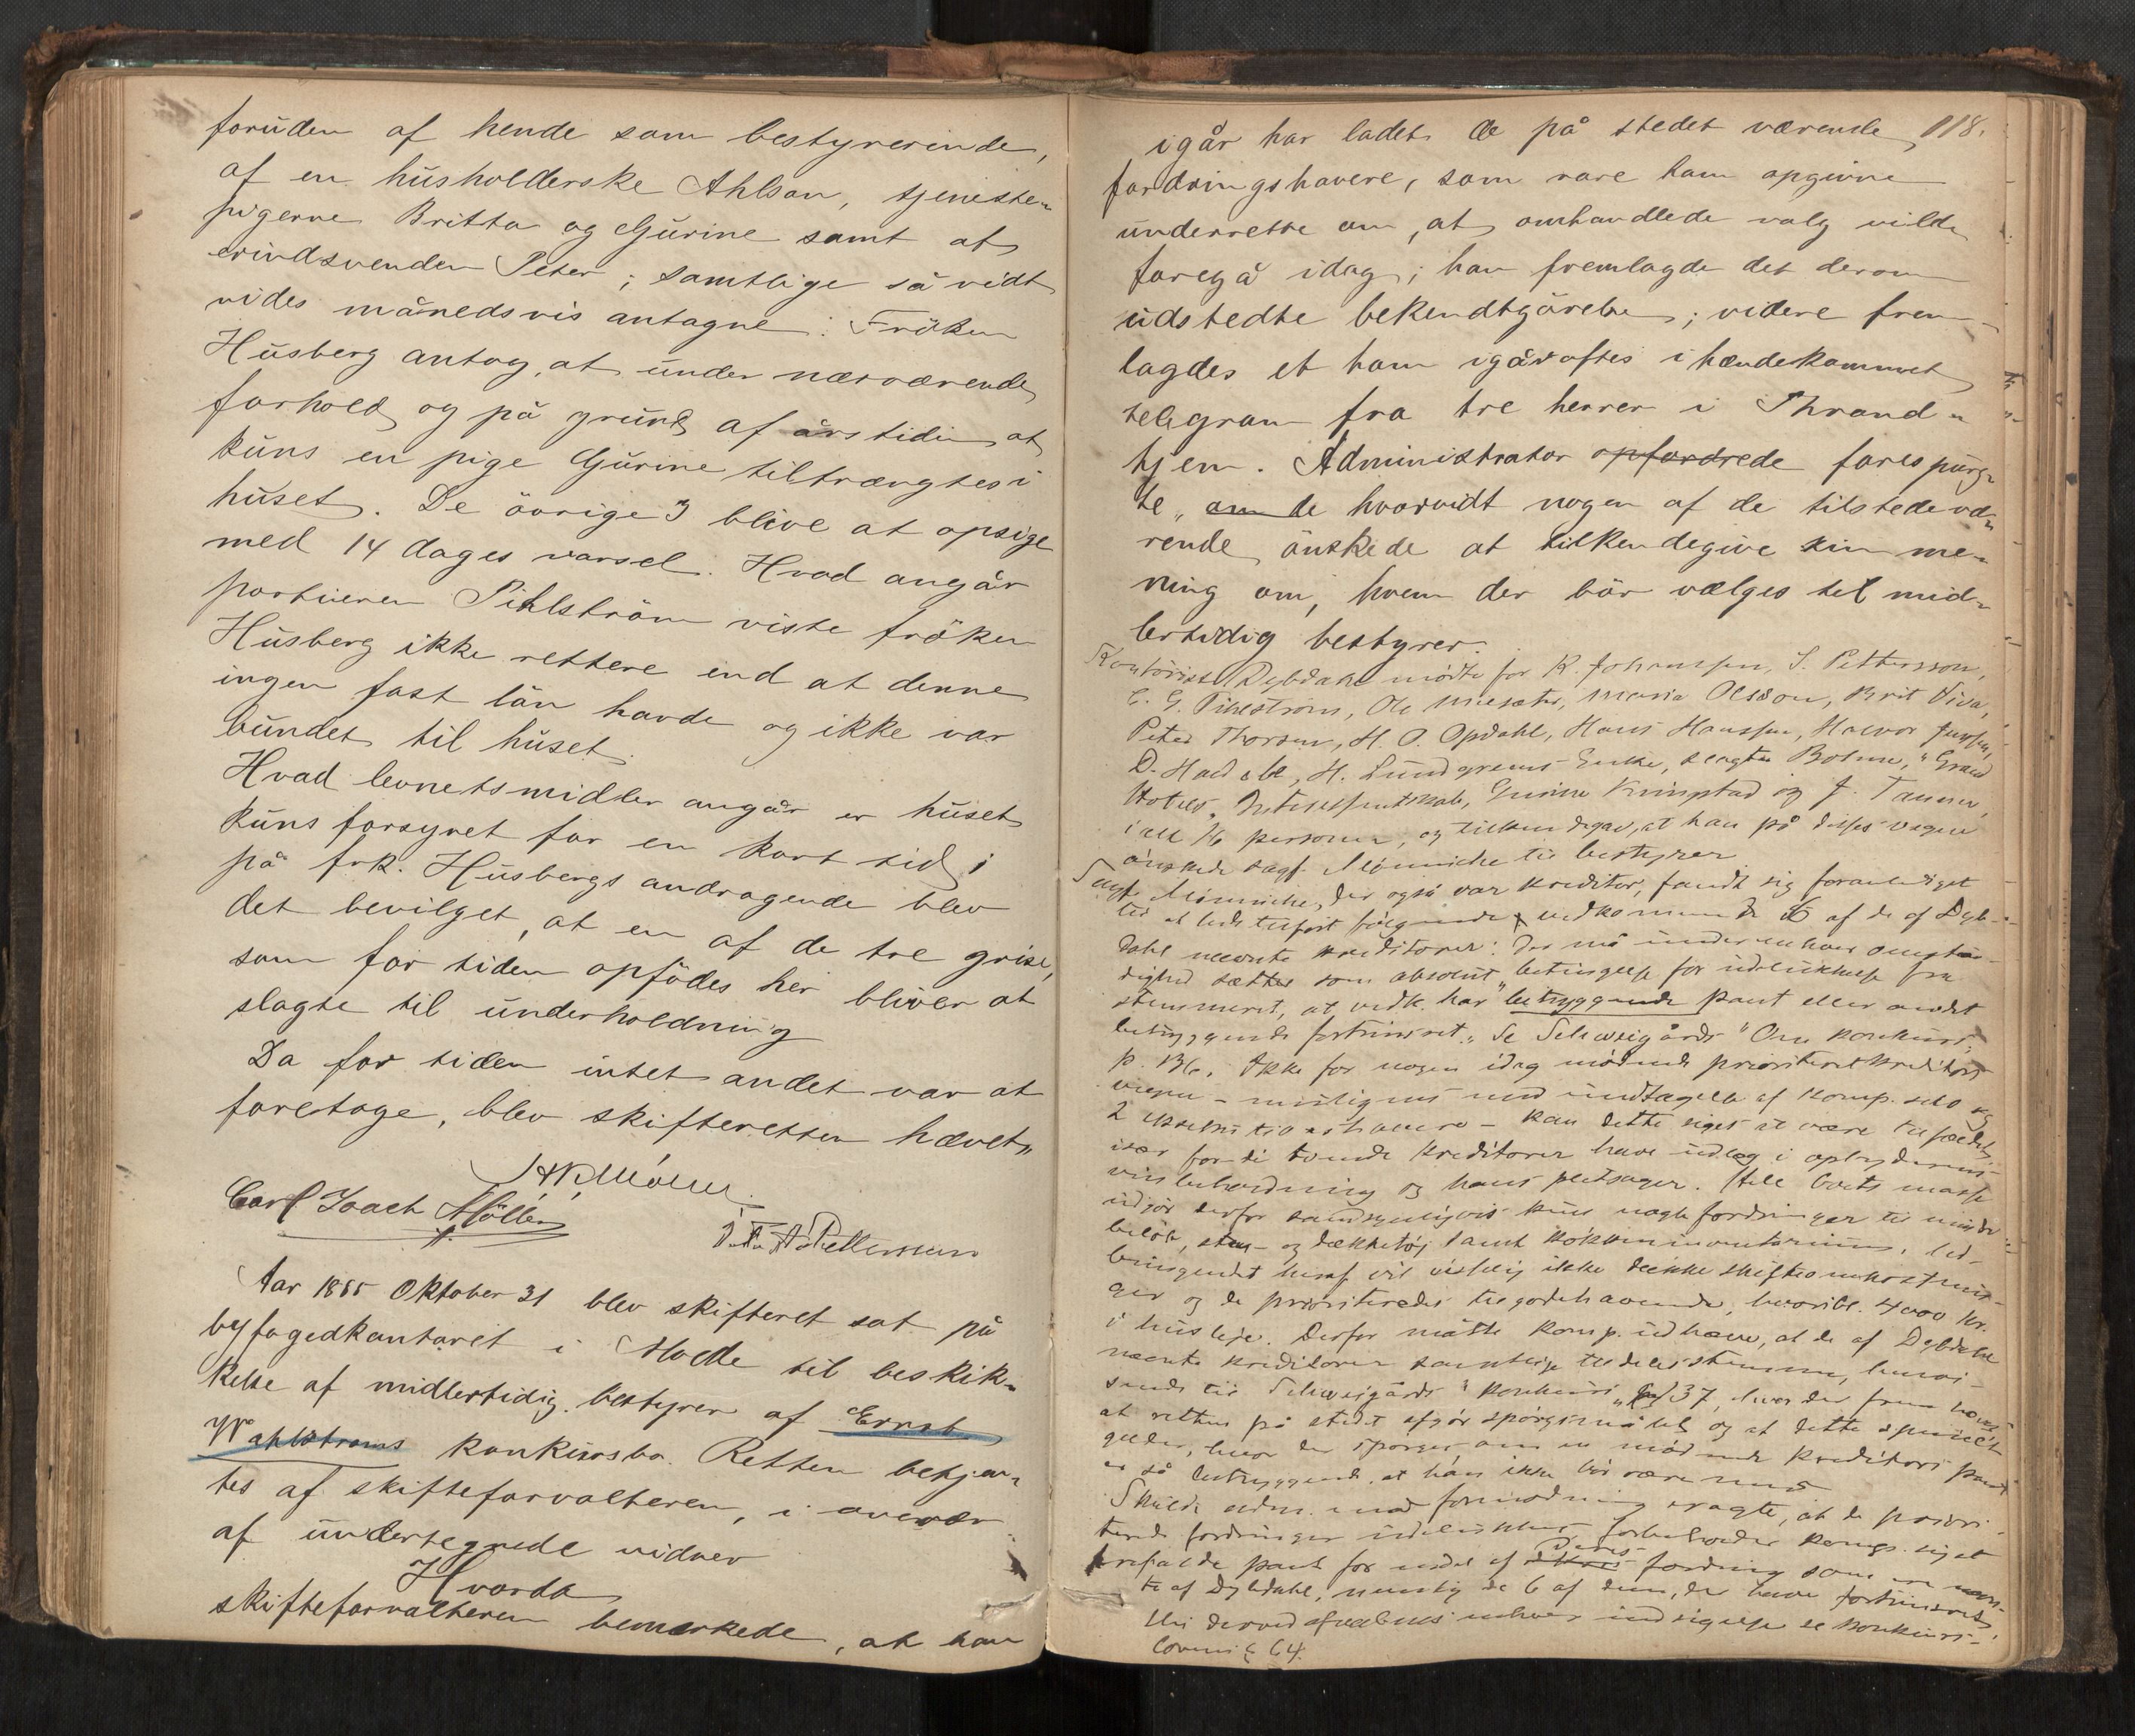 foruden af hende som bestyrerinde,
af en husholderske Ahlson, tjeneste-
pigerne Britta og Gurine samt af
erindsvenden Peter; samtlige så vidt
vides månedsvis antagne. Fröken
Husberg antog, at under nærværende
forhold og på grund af årstiden at
kuns en pige Gurine tiltrængtes i
huset. De övrige 3 blive at opsige
med 14 dages varsel. Hvad angår
portieren Pihlström viste fröken
Husberg ikke rettere end at denne
ingen fast lön havde og ikke var
bundet til huset.
Hvad levnetsmidler angår er huset
kuns forsynet for en kort tid;
på frk. Husbergs andragende blev
det bevilget, at en af de tre grise,
som for tiden opfödes her bliver at
slagte til underholdning
Da for tiden intet andet var at
foretage, blev skifteretten hævet.
Carl Joach Möller
Aar 1885 Oktober 31 blev skifteret sat på
byfogedkontoret i Molde til beskik-
kelse af midlertidig bestyrer af Ernst
Wahlstrøms konkursbo. Retten betjen-
tes af skifteforvalteren, i overvær
af undertegnede vidner
Hvorda
skifteforvalteren bemærkede, at han
118.
igår har ladet de på stedet værende
fordringshavere, som vare ham opgivne
underrette om, at omhandlede valg vilde
foregå idag; han fremlagde det derom
udstedte bekendtgörelse; videre frem-
lagdes et ham igåraftes ihændekommet
telegram fra tre herrer i Thrond-
hjem. Administrator opfordrede forespurg-
te om de hvorvidt nogen af de tilstedevæ-
rende önskede at tilkendegive sin me-
ning om, hvem der bör vælges til mid-
lertidig bestyrer.
Kontorist Dybdahl mødte for K. Johanssen, S. Pettersson,
C. G. Pihlstrøm, Ole Maria Olsson, Brit
Peter Thorsen, H. O. Opdahl, Hans Hanssen, Halvor Jenssen,
D. H. Lundgrens Enke, slagter Bolme, "Grand
Hotels" Interessentskab, Gurine og J.
ialt 16 personer, og tilkendegav, at han på disses vegne
önskede sagf. Mönniche til bestyrer
Sagf. Mönniche, der også var kreditor, fandt sig foranlediget
til at lede tilført følgende vedkommende 6 af de af Dyb-
dahl nævnte kreditorer: Der må under enhver omstæn-
dighed sættes som absolut betingelse for udelukkelse fra
stemmeret, at vedk. har betryggende pant eller andet
betryggende fortrinsret. Se Schweigårds "Om konkurs,
p. 136. Ikke for nogen idag mødende prioriteret kreditors
vegne - muligens med undtagelse af komp. selv og
2 - kan dette siges at være tilfældet,
især fordi kreditorer have udlæg i
vinbeholdning og hans pletsager. Hele boets masse
udgör derfor sandsynligvis kun nogle fordringer til mindre
belöb, og dækketøj samt kökkeninventarium.
bringendet heraf vil vistelig ikke dække skifteomkostnin-
ger og de prioriteredes tilgodehavende, hvoribl. 4000 kr.
i husleje. Derfor måtte komp. udhæve, at de af Dybdahl
nævnte kreditorer samtlige tildeles stemme, henvi-
sende til Schweigårds konkurs, 137, hvor der
at retten på stedet afgör spörgsmålet og at dette specielt
gælder, hvor der spørges, om en mødende kreditors pant
er så betryggende, at han ikke bör være med
Skulde adm. mod formodning eragte, at de priori-
terede fordringer udelukkes, forbeholder komp. sig at
frafalde pant for endel af deres fordring som
te af Dybdahl, nemlig de 6 af dem, der have fortrinsret,
thi derved enhver indsigelse se konkurs-
lovens § 64.